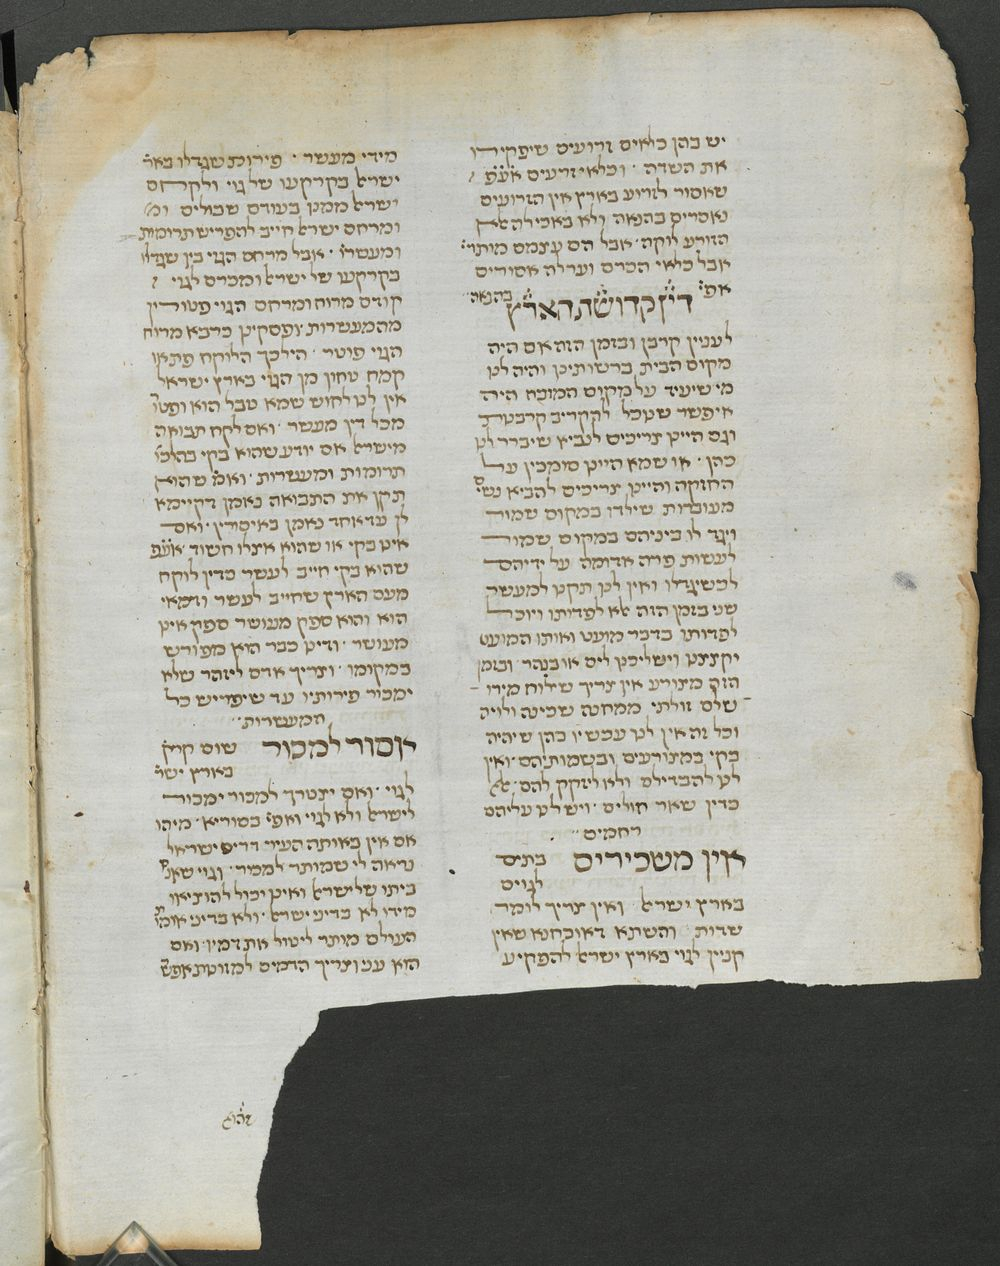 יש בהן כלאים זרועים שיפקירו
את השדה . וכלאי זרעים אע״פ
שאסור לזרוע בארץ אין הזרועים
נאסרים בהנאה ולא באכילה אלא
הזורע לוקה . אבל הם עצמם מותרי׳
אבל כלאי הכרם וערלה אסורים
אפי׳ בהנאה
דין קדושת הארץ
לענין קרבן ובזמן הזה אם היה
מקום הבית ברשותינו והיה לנו
מי שיעיד על מקום המזבח היה
איפשר שנוכל להקריב קרבנות
וגם היינו צריכים לנביא שיברר לנו
כהן . או שמא היינו סומכין על
החזקה והיינו צריכים להביא נשים
מעוברות שילדו במקום שמור
ויגדלו ביניהם במקום שמור
לעשות פרה אדומה על ידיהם
לכשיגדלו ואין לנו תקנו למעשר
שני בזמן הזה אלא לפדותו ויוכל
לפדותו בדבר מועט ואותו המועט
יקצצנו וישליכנו לים או בנהר . ובזמן
הזה מצורע אין צריך שילוח מירו־
שלם זולתי ממחנה שכינה ולויה
וכל זה אין לנו עכשיו כהן שיהיה
בקי במצורעים ובשמותיהם . ואין
לנו להבדילם ולא לזקק להם אלא
כדין שאר חולים . ויש לנו עליהם
רחמים
אין משכירים בתים
לגוים
בארץ ישראל ואין צריך לומר
שדות והשתא דאוכחנא שאין
קנין לגוי בארץ ישראל להפקיע
מידי מעשר . פירות שגדלו באר׳
ישראל בקרקעו של גוי ולקחם
ישראל ממנו בעודם שבולים
ומרחם ישראל חייב להפריש תרומות
ומעשרו׳ . אבל מרחם הגוי בין שגדלו
בקרקעו של ישראל ומכרם לגוי
קודם מרוח ומרחם הגוי פטורין
מהמעשרות ופסקינן כרבא מרוח
הגוי פוטר . הילכך הלוקח פת או
קמח טחון מן הגוי בארץ ישראל
אין לנו לחוש שמא טבל הוא ופטו׳
מכל דין מעשר . ואם לקח תבואה
מישראל אם יודע שהוא בקי בהלכו׳
תרומות ומעשרות . ואמ׳ שהוא
תקן את התבואה נאמן דקיימא
לן עד אחד נאמן באיסורין . ואם
אינו בקי או שהוא אצלו חשוד אע״פ
שהוא בקי חייב לעשר כדין לוקח
מעם הארץ שחייב לעשר ודמאי
הוא והוא ספק מעושר ספק אינו
מעושר . ודינו כבר הוא מפורש
במקומו . וצריך אדם ליזהר שלא
ימכור פירותיו עד שיפריש כל
המעשרות
אסור למכור שום קרק׳
בארץ ישר׳
לגוי . ואם יצטרך למכור ימכור
לישראל ולא לגוי ואפי׳ בסוריא . מיהו
אם אין באותה העיר דרים ישראל
נראה לי שמותר למכור . וגוי שאנס
ביתו של ישראל ואינו יכול להוציאו
מידו לא בדיני ישראל . ולא בדיני אומות
העולם מותר ליטול את דמיו . ואם
הוא עני וצריך הדמים למזונות אפש׳